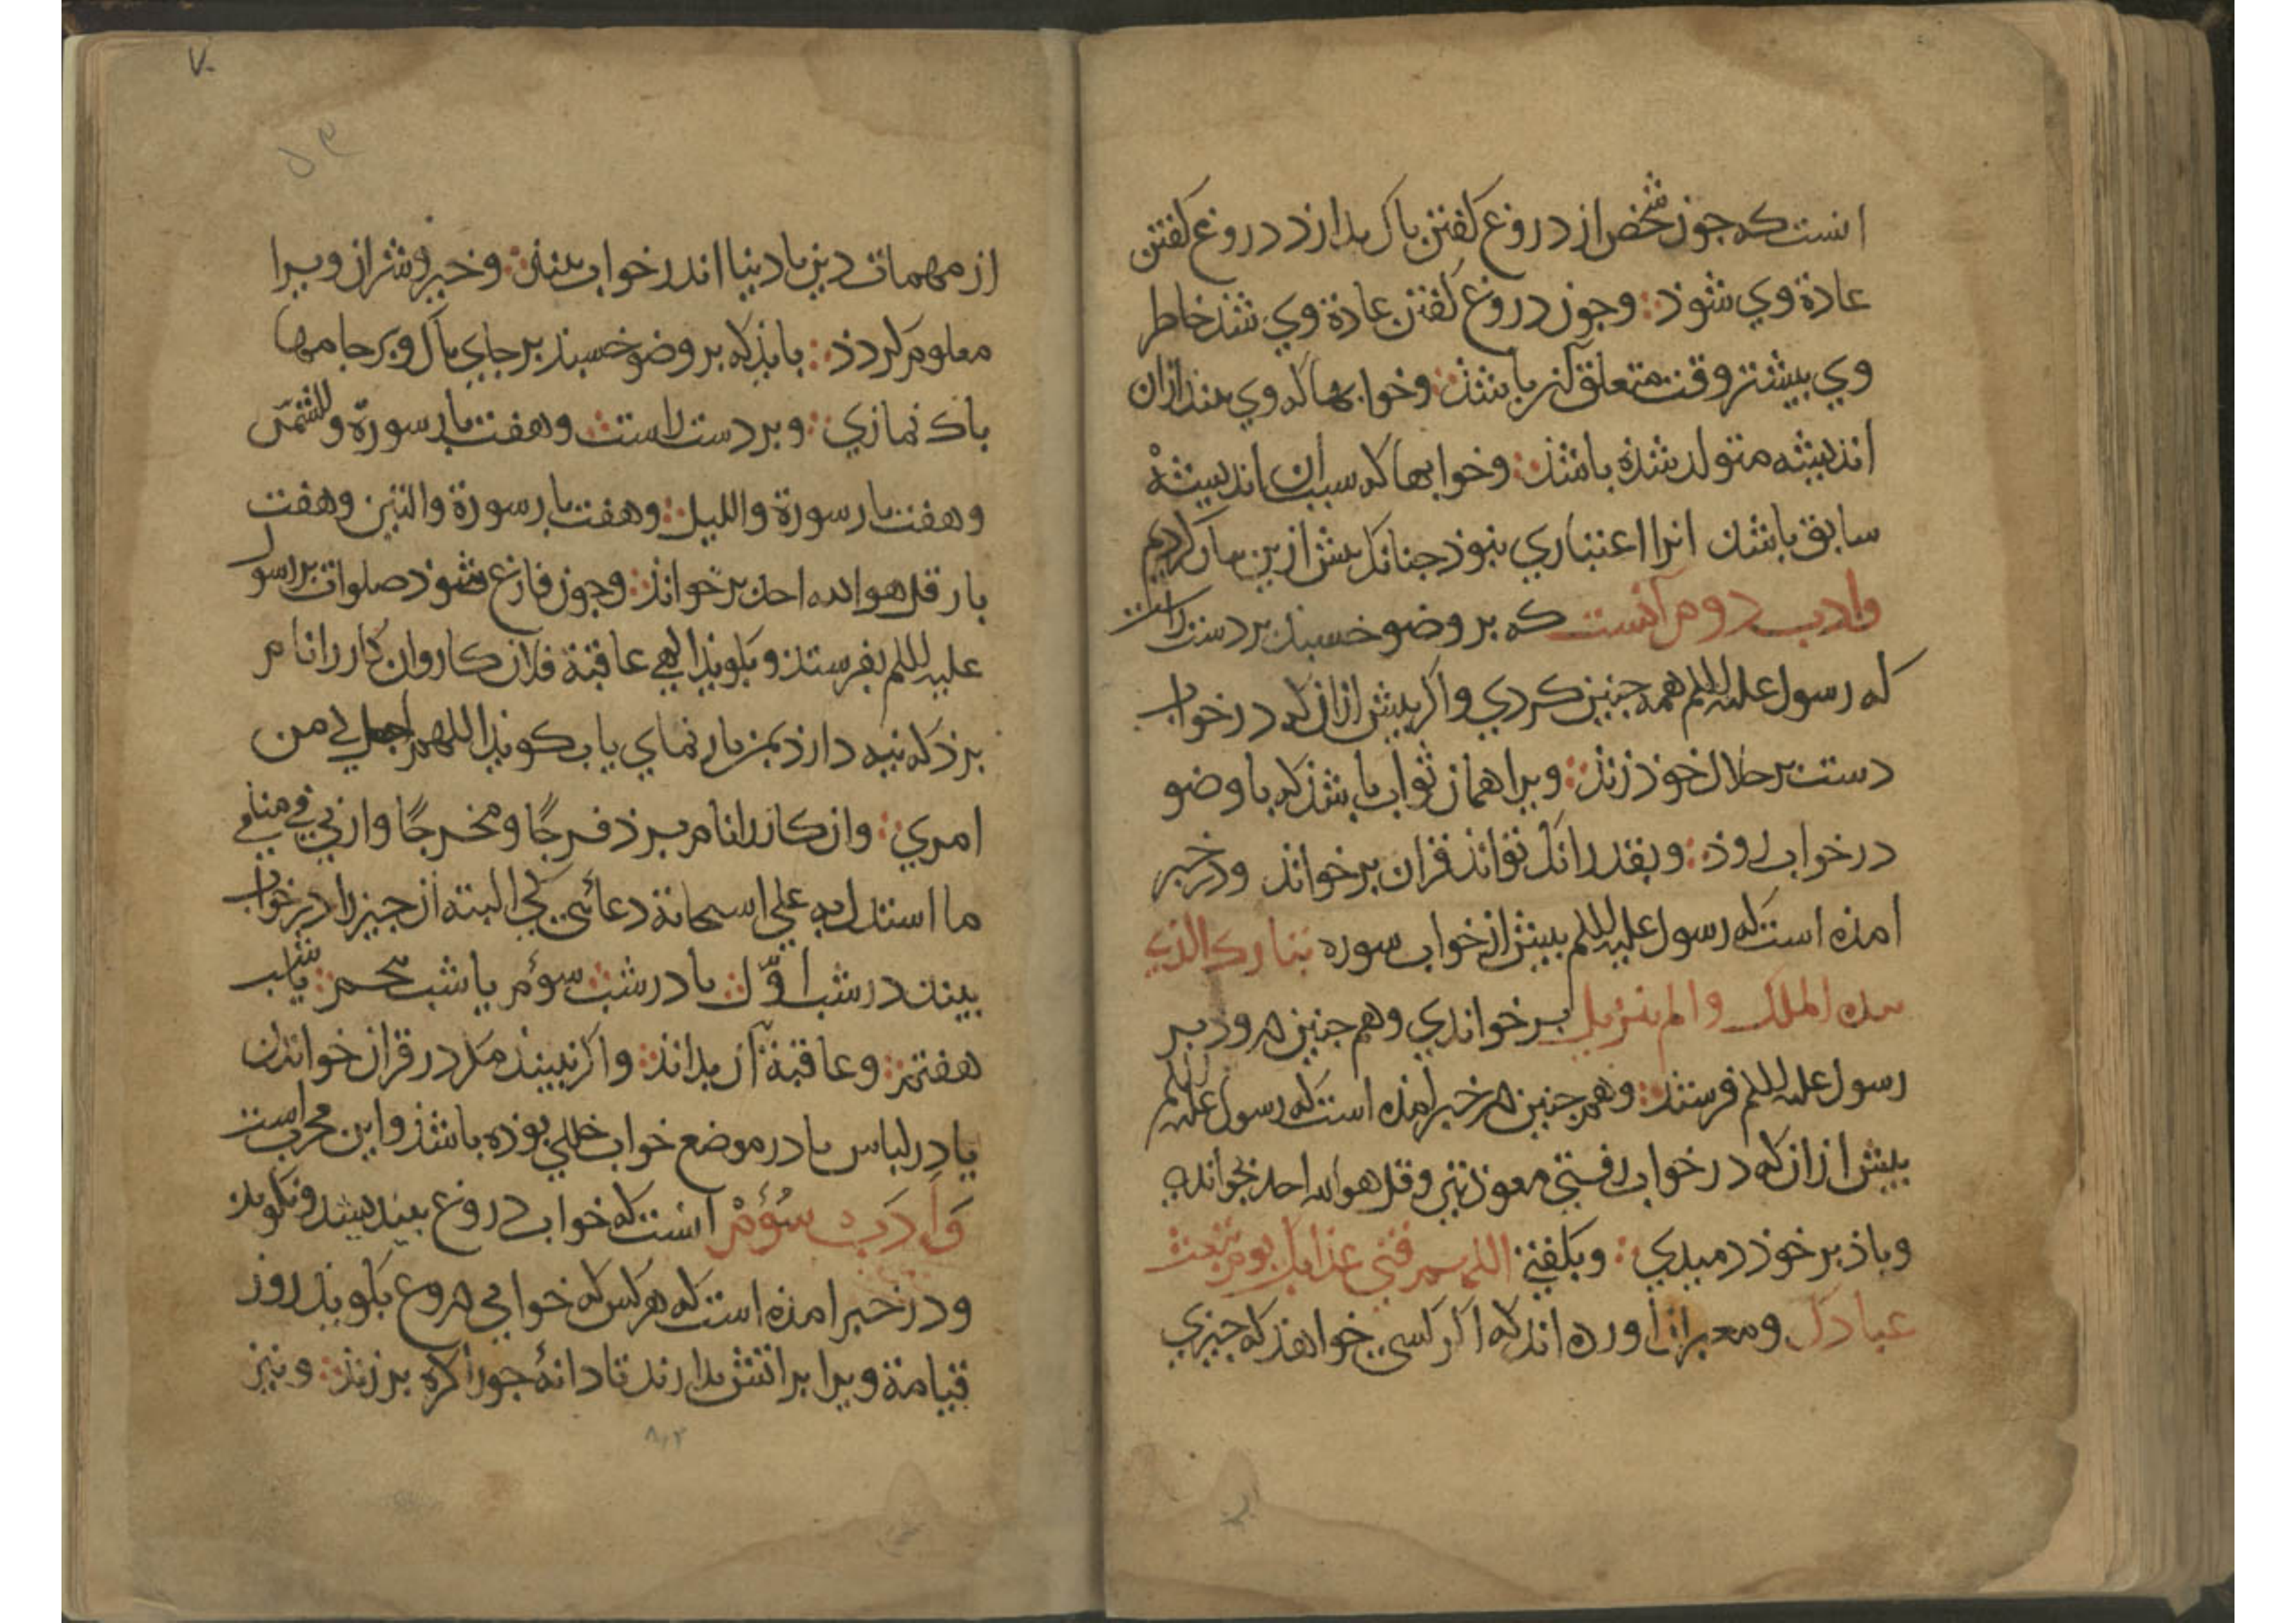 انست که جون شخص از دروغ کفتن باک بدارد دروغ کفتن
عادة وي شوذ وجون دروغ کفتن عاذة وي شذ خاطر
وي بیشتر وقت متعلق آن باشذ وخوابها که وي بیند ازان
اندیشه متولد شذه باشذ وخوابها که سبب ان اندیشهٔ
سابق باشذ انرا اعتباري نبوذ جنانک بیش ازین بیان کردیم
وادب دوم آنست که بر وضو خسبذ بر دست راست
که رسول علیه السلم همه جنین کردي واکر بیش ازان که در خواب
دست بر حلال خوذ زند ویرا همان ثواب باشذ که با وضو
در خواب روذ وبقدر انک تواند قران برخواند ودر خبر
امذه است که رسول علیه السلم بیش از خواب سوره تبارک الذي
بیده الملک والم تنزیل برخواندي وهم جنین درود بر
رسول علیه السلم فرستد وهم جنین در خبر امذه است که رسول علیه السلم
بیش ازان که در خواب رفتي معوذتین وقل هو الله احد بخواندي
وباذ بر خوذ دمیدي وبکفتي اللهم قني عذابک یوم تبعث
عبادک ومعبران اورده اند که اکر کسي خواهذ که جیزي
۷۰
از مهمات دین یا دنیا اندر خواب بیند وخیر وشر ان ویرا
معلوم کردذ بایذ که بر وضو خسبذ بر جاي باک وبر جامها
باک نمازي وبر دست راست وهفت بار سورة والشمس
وهفت بار سورة واللیل وهفت بار سورة والتین وهفت
بار قل هو الله احد برخواند وجون فارغ شوذ صلوات بر رسول
علیه السلم بفرستد وبکویذ الهي عاقبة فلان کار وان کار را نام
برذ که نیه دارذ بمن باز نماي یا بکویذ اللهم اجعل لي من
امري وان کار را نام برذ فرجًا ومخرجًا وارني في منامي
ما استدل به علي اسجابة دعائي کي البته ان جیز را در خواب
بیند در شب اوّل یا در شب سوم یا شب بنجم یا شب
هفتم وعاقبة آن بداند واکر نبیند مکر در قران خواندن
یا در لباس یا در موضع خواب خللي بوذه باشذ واین مجرب است
وَاَدَب سوُم انست که خواب دروغ نیندیشد ونکوید
ودر خبر امذه است که هر کس که خوابي دروغ بکویذ روز
قیامة ویرا بر اتش بدارند تا دانهٔ جو را کره برزند ونیز